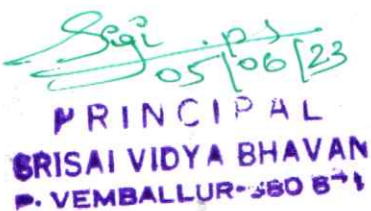 Sigi .p.s
05/06/23
PRINCIPAL
SRISAI VIDYA BHAVAN
P. VEMBALLUR-680 671